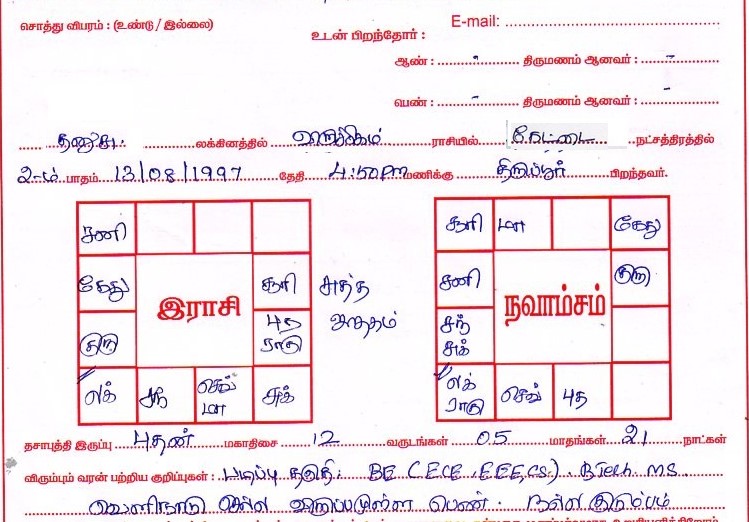 சொத்து விபரம் : (உண்டு / இல்லை)
E-mail:
உடன் பிறந்தோர் :
ஆண் : - திருமணம் ஆனவர் : -
பெண் : - திருமணம் ஆனவர் : -
தனுசு. லக்கினத்தில் விருச்சிகம் ராசியில் கேட்டை நட்சத்திரத்தில்
2-ம் பாதம் 13/08/1997 தேதி 4:50PM மணிக்கு திருப்பூர் பிறந்தவர்.
சனி
கேது
குரு
லக் சந் செவ் மா சுக்
சூரி
புத ராகு
இராசி
சுத்த
ஜாதகம்
சூரி மா கேது
சனி குரு
சந் சுக்
லக் ராகு செவ் புத
நவாம்சம்
தசாபுத்தி இருப்பு புதன் மகாதிசை 12 வருடங்கள் 05 மாதங்கள் 21 நாட்கள்
விரும்பும் வரன் பற்றிய குறிப்புகள் : படிப்பு தகுதி: BE (ECE, EEE, CS). BTech. MS
வெளிநாடு செல்ல விருப்பமுள்ள பெண். நல்ல குடும்பம்